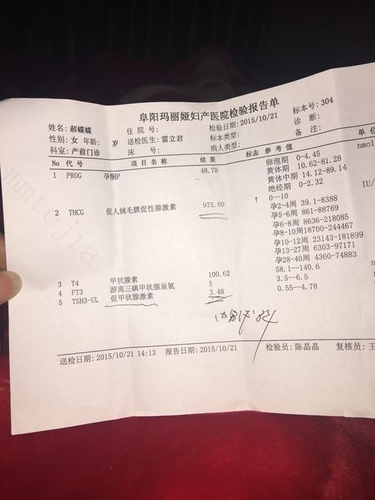 阜阳玛丽娅妇产医院检验报告单
姓名: 郝蝶蝶 住 院 号: 标本号: 304
性别: 女 年龄: 岁 检验日期: 2015/10/21 诊 断:
科室: 产前门诊 送检医生: 雷立君 标本类型: 备 注:
床 号: 病人类型:
No 代 号 项 目 名 称 结 果 标志 参 考 值 单 位
1 PROG 孕酮P 48.78 卵泡期 0-4.45 nmol
黄体期 10.62-81.28
黄体中期 14.12-89.14
绝经期 0-2.32
2 THCG 促人绒毛膜促性腺激素 975.80 ↑ 0—10 IU/
孕2-4周 39.1-8388
孕5-6周 861-88769
孕6-8周 8636-218085
孕8-10周18700-244467
孕10-12周 23143-181899
孕13-27周 6303-97171
孕28-40周 4360-74883
3 T4 甲状腺素 100.62 58.1—140.6
4 FT3 游离三碘甲状腺原氨 5 3.5—6.5
5 TSH3-UL 促甲状腺激素 3.48 0.55—4.78
送检日期: 2015/10/21 14:13 报告日期: 2015/10/21 检验员: 陈晶晶 复核员: 王